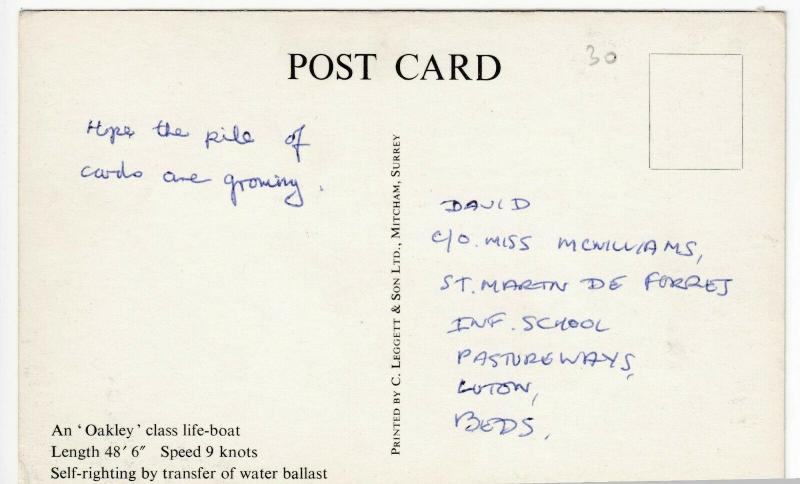 POST CARD
30
Hope the pile of
cards are growing.
PRINTED BY C. LEGGETT & SON LTD., MITCHAM, SURREY
DAVID
C/O. MISS MCWILLIAMS,
ST. MARTN DE FORRES
INF. SCHOOL
PASTUREWAYS,
LUTON,
BEDS.
An ‘Oakley’ class life-boat
Length 48′ 6″ Speed 9 knots
Self-righting by transfer of water ballast